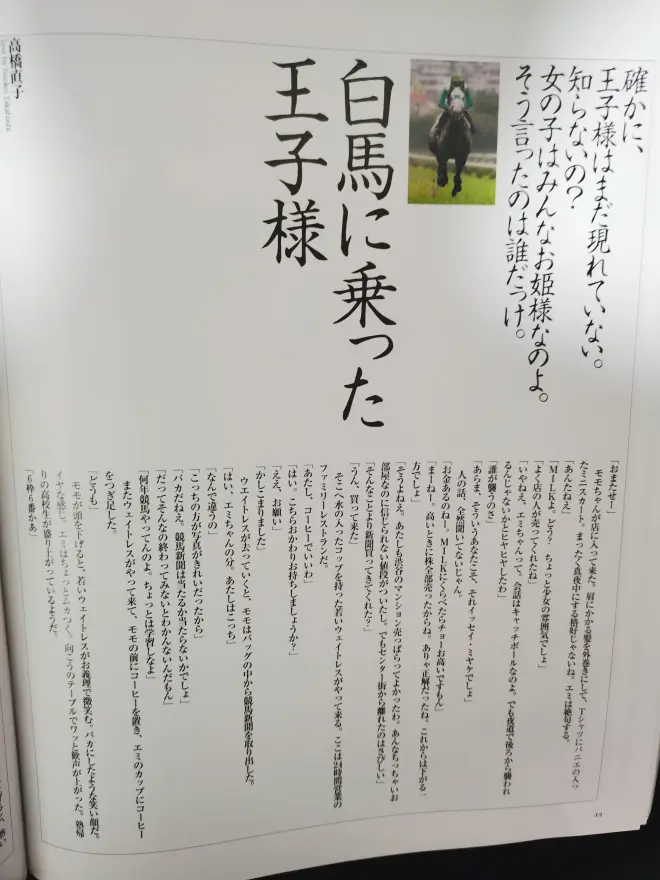 確かに、
王子様はまだ現れていない。
知らないの？
女の子はみんなお姫様なのよ。
そう言ったのは誰だっけ。
白馬に乗った
王子様
高橋直子
「おまたせー」
モモちゃんが店に入って来た。肩にかかる髪を外巻きにして、Tシャツにパニエの入っ
たミニスカート。まったく真夜中にする格好じゃないね。エミは絶句する。
「あんたねえ」
「MILKよ。どう？　ちょっと少女の雰囲気でしょ」
「よく店の人が売ってくれたね」
「いやねえ、エミちゃんって。会話はキャッチボールなのよ。でも夜道で後ろから襲われ
るんじゃないかとヒヤヒヤしたわ」
「誰が襲うのさ」
「あらま、そういうあなたこそ、それイッセイ・ミヤケでしょ」
人の話、全然聞いてないじゃん。
「お金あるのねー。MILKにくらべたらチョーお高いですもん」
「まーねー。高いときに株全部売ったからね。ありゃ正解だったね。これからは下がる一
方でしょ」
「そうよねえ。あたしも渋谷のマンション売っぱらってよかったわ。あんなちっちゃいお
部屋なのに信じられない値段がついたし。でもセンター街から離れたのはさびしい」
「そんなことより新聞買ってきてくれた？」
「うん、買って来た」
そこへ水の入ったコップを持った若いウェイトレスがやって来る。ここは24時間営業の
ファミリーレストランだ。
「あたし、コーヒーでいいわ」
「はい。こちらおかわりお持ちしましょうか？」
「ええ、お願い」
「かしこまりました」
ウエイトレスが去っていくと、モモはバッグの中から競馬新聞を取り出した。
「はい、エミちゃんの分。あたしはこっち」
「なんで違うの」
「こっちの方が写真がきれいだったから」
「バカだねえ。競馬新聞は当たるか当たらないかでしょ」
「だってそんなの終わってみないとわかんないんだもん」
「何年競馬やってんのよ。ちょっとは学習しなよ」
またウェイトレスがやって来て、モモの前にコーヒーを置き、エミのカップにコーヒー
をつぎ足した。
「どうも」
モモが頭を下げると、若いウェイトレスがお義理で微笑む。バカにしたような笑い顔だ。
イヤな感じ。エミはちょっとムカつく。向こうのテーブルでワッと歓声が上がった。塾帰
りの高校生が盛り上がっているようだ。
「6枠6番かあ」
49